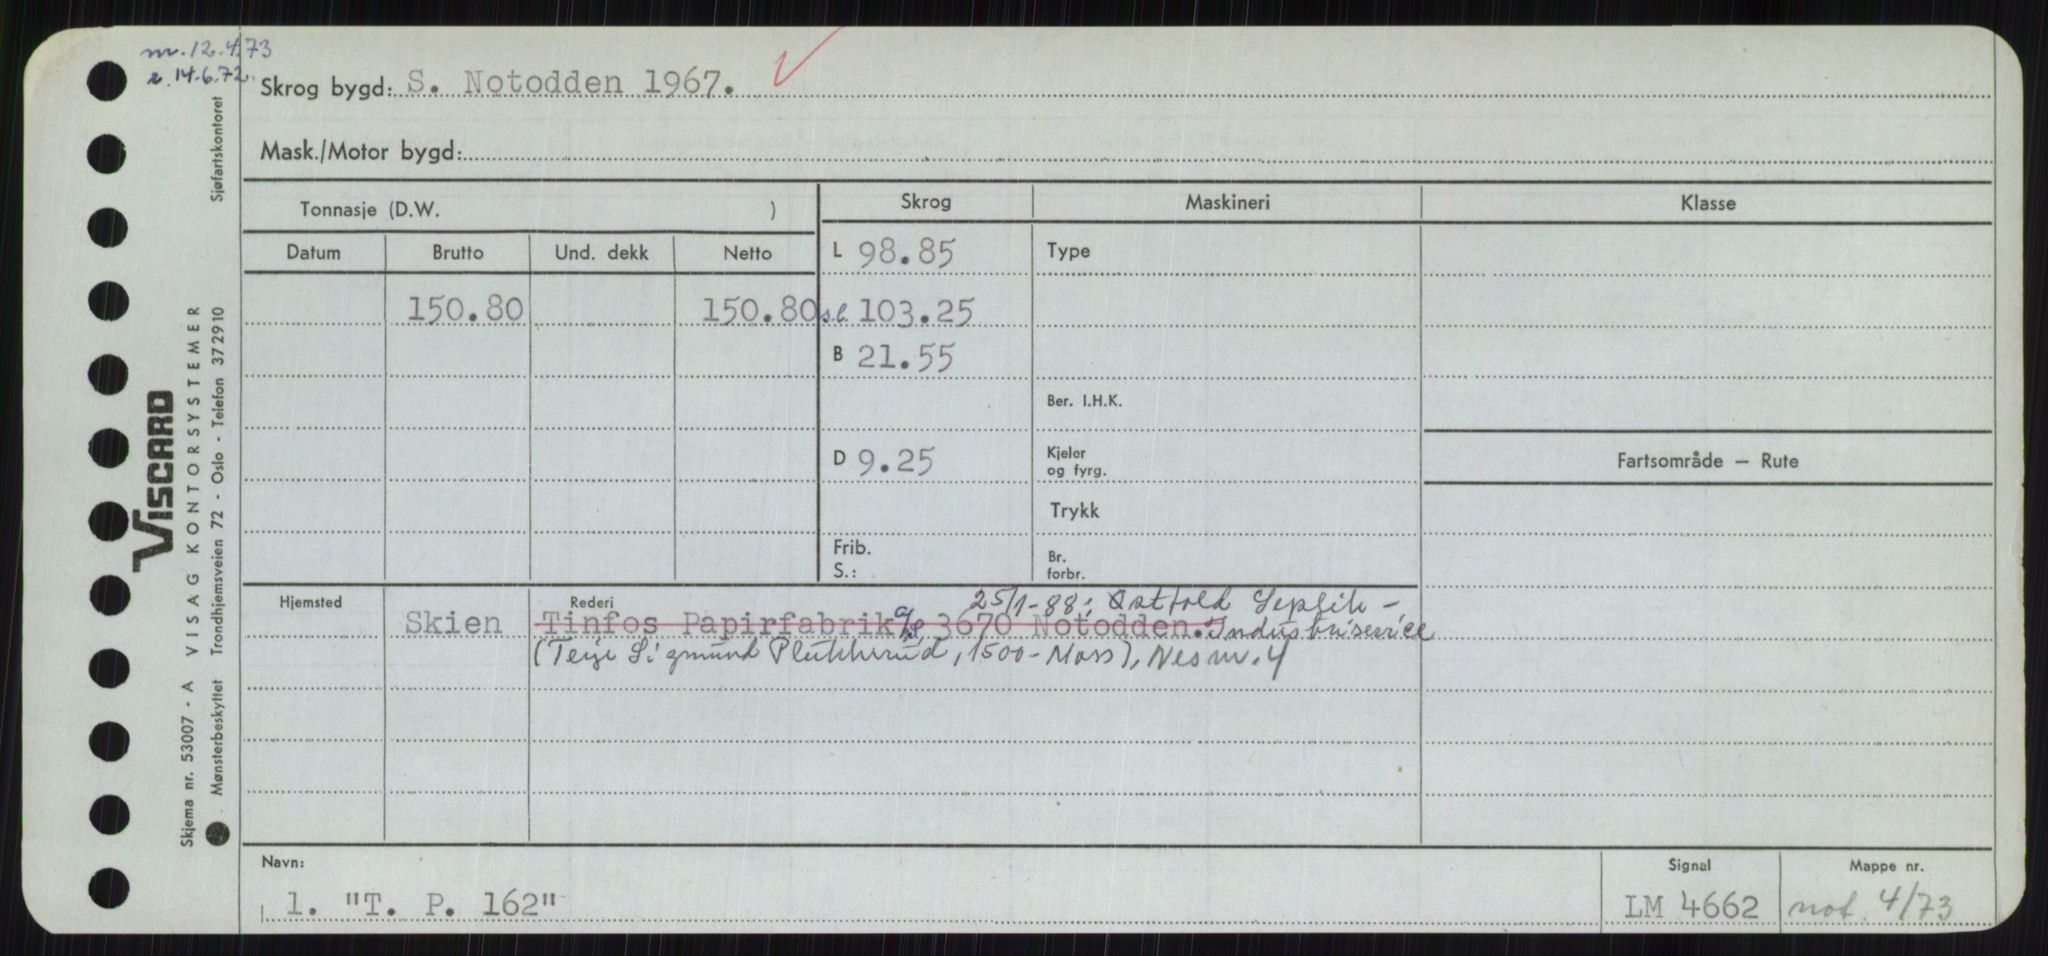 nr. 12.4.73
e. 14.6.72.
Skrog bygd: S. Notodden 1967.
Mask./Motor bygd:
Tonnasje (D.W. )
Skrog
Maskineri
Klasse
Datum
Brutto
Und. dekk
Netto
L 98.85
Type
150.80
150.80
s.l. 103.25
B 21.55
Ber. I.H.K.
D 9.25
Kjeler
og fyrg.
Fartsområde – Rute
Trykk
Frib.
S.:
Br.
forbr.
Hjemsted
Skien
Rederi
25/1-88: Østfold Septik-
Tinfos Papirfabrik A/S 3670 Notodden. Industriservice
(Terje Sigmund Plukkerud, 1500-Moss), Nes nr. 4
Navn:
1. "T. P. 162"
Signal
LM 4662
Mappe nr.
not. 4/73
Sjøfartskontoret
VISCARD
VISAG KONTORSYSTEMER
Trondhjemsveien 72 - Oslo - Telefon 372910
Skjema nr. 53007 - A
Mønsterbeskyttet